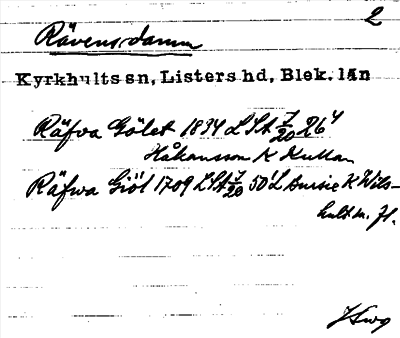 2
Rävens damm
Kyrkhults sn, Listers hd, Blek. län
Räfva Gölet 1834 LSA 7/20 26 4
Håkansson K Kullan
Räfwa Giöl 1709 LSA 7/20 50 L K Wils-
hult m. fl.